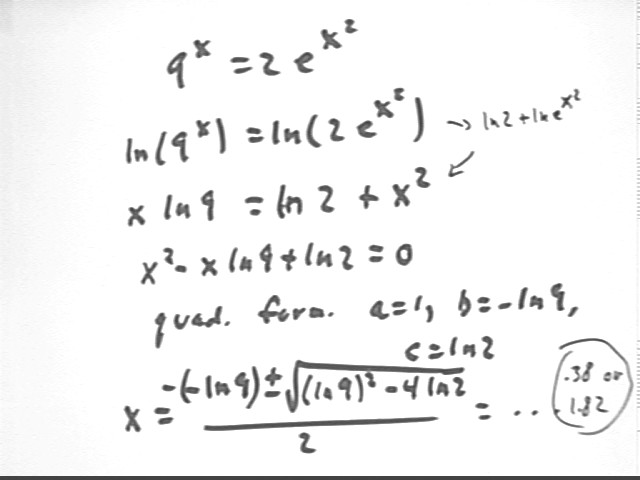 9^x = 2 e^{x^2}
ln(9^x) = ln(2 e^{x^2}) → ln 2 + ln e^{x^2}
x ln 9 = ln 2 + x^2 ↙
x^2 - x ln 9 + ln 2 = 0
quad. form. a=1, b=-ln 9,
c=ln 2
x = \frac{-(-ln 9) ± \sqrt{(ln 9)^2 - 4 ln 2}}{2} = ...
.38 or
1.82